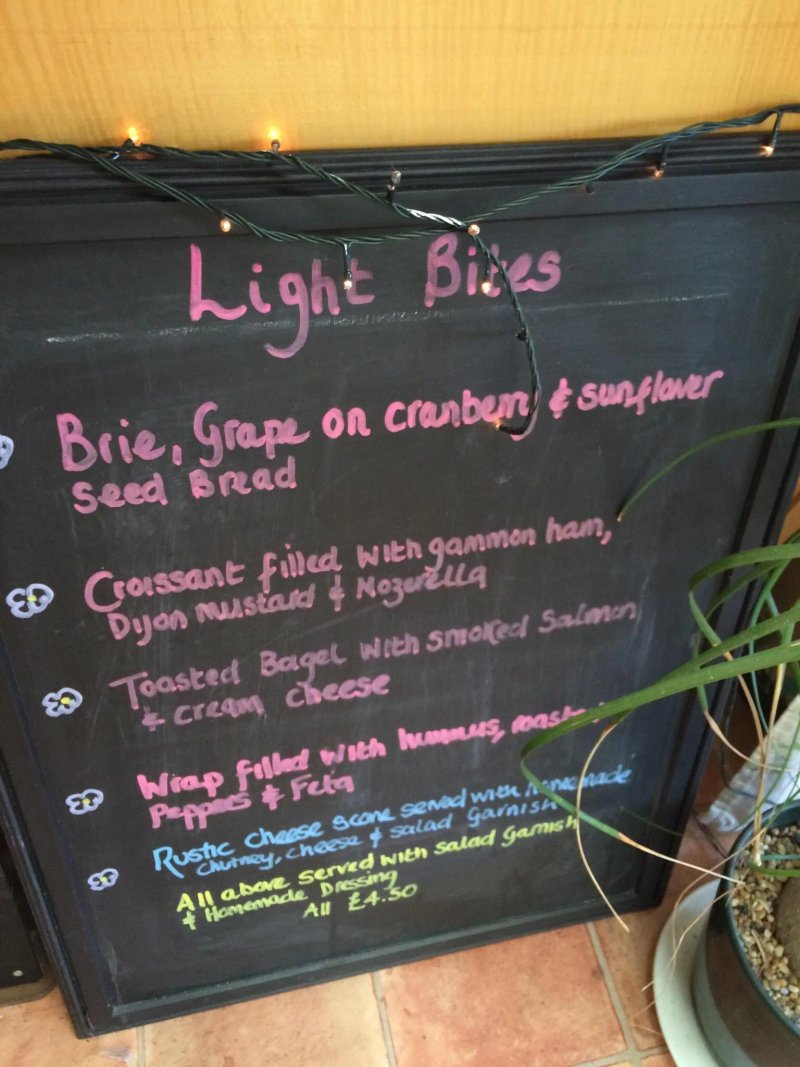 Light Bites
Brie, Grape on cranberry & sunflower
seed Bread
Croissant filled with gammon ham,
Dijon mustard & Mozerella
Toasted Bagel with smoked Salmon
& cream cheese
Wrap filled with hummus,
Peppers & Feta
Rustic cheese scone served with homemade
chutney, cheese & salad Garnish
All above served with salad Garnish
& Homemade Dressing
All £4.50